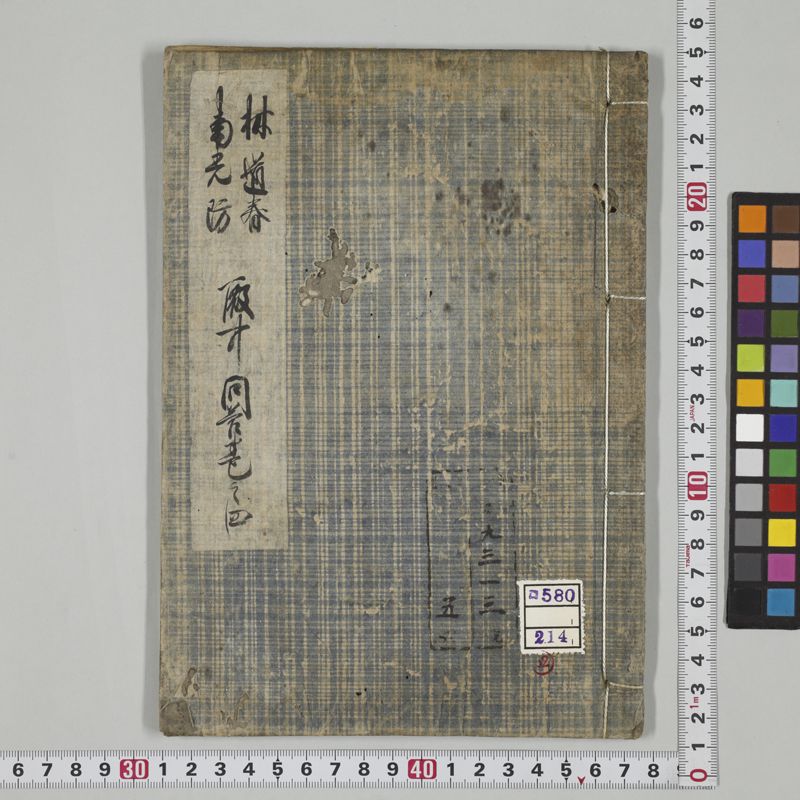 林道春
南光防
殿中問答巻之四
九三一三
五
580
214
6 7 8 9 30 1 2 3 4 5 6 7 8 9 40 1 2 3 4 5 6 7 8
6 5 4 3 2 1 20 9 8 7 6 5 4 3 2 1 10 9 8 7 6 5 4 3 2 1 0
JAPAN
1m